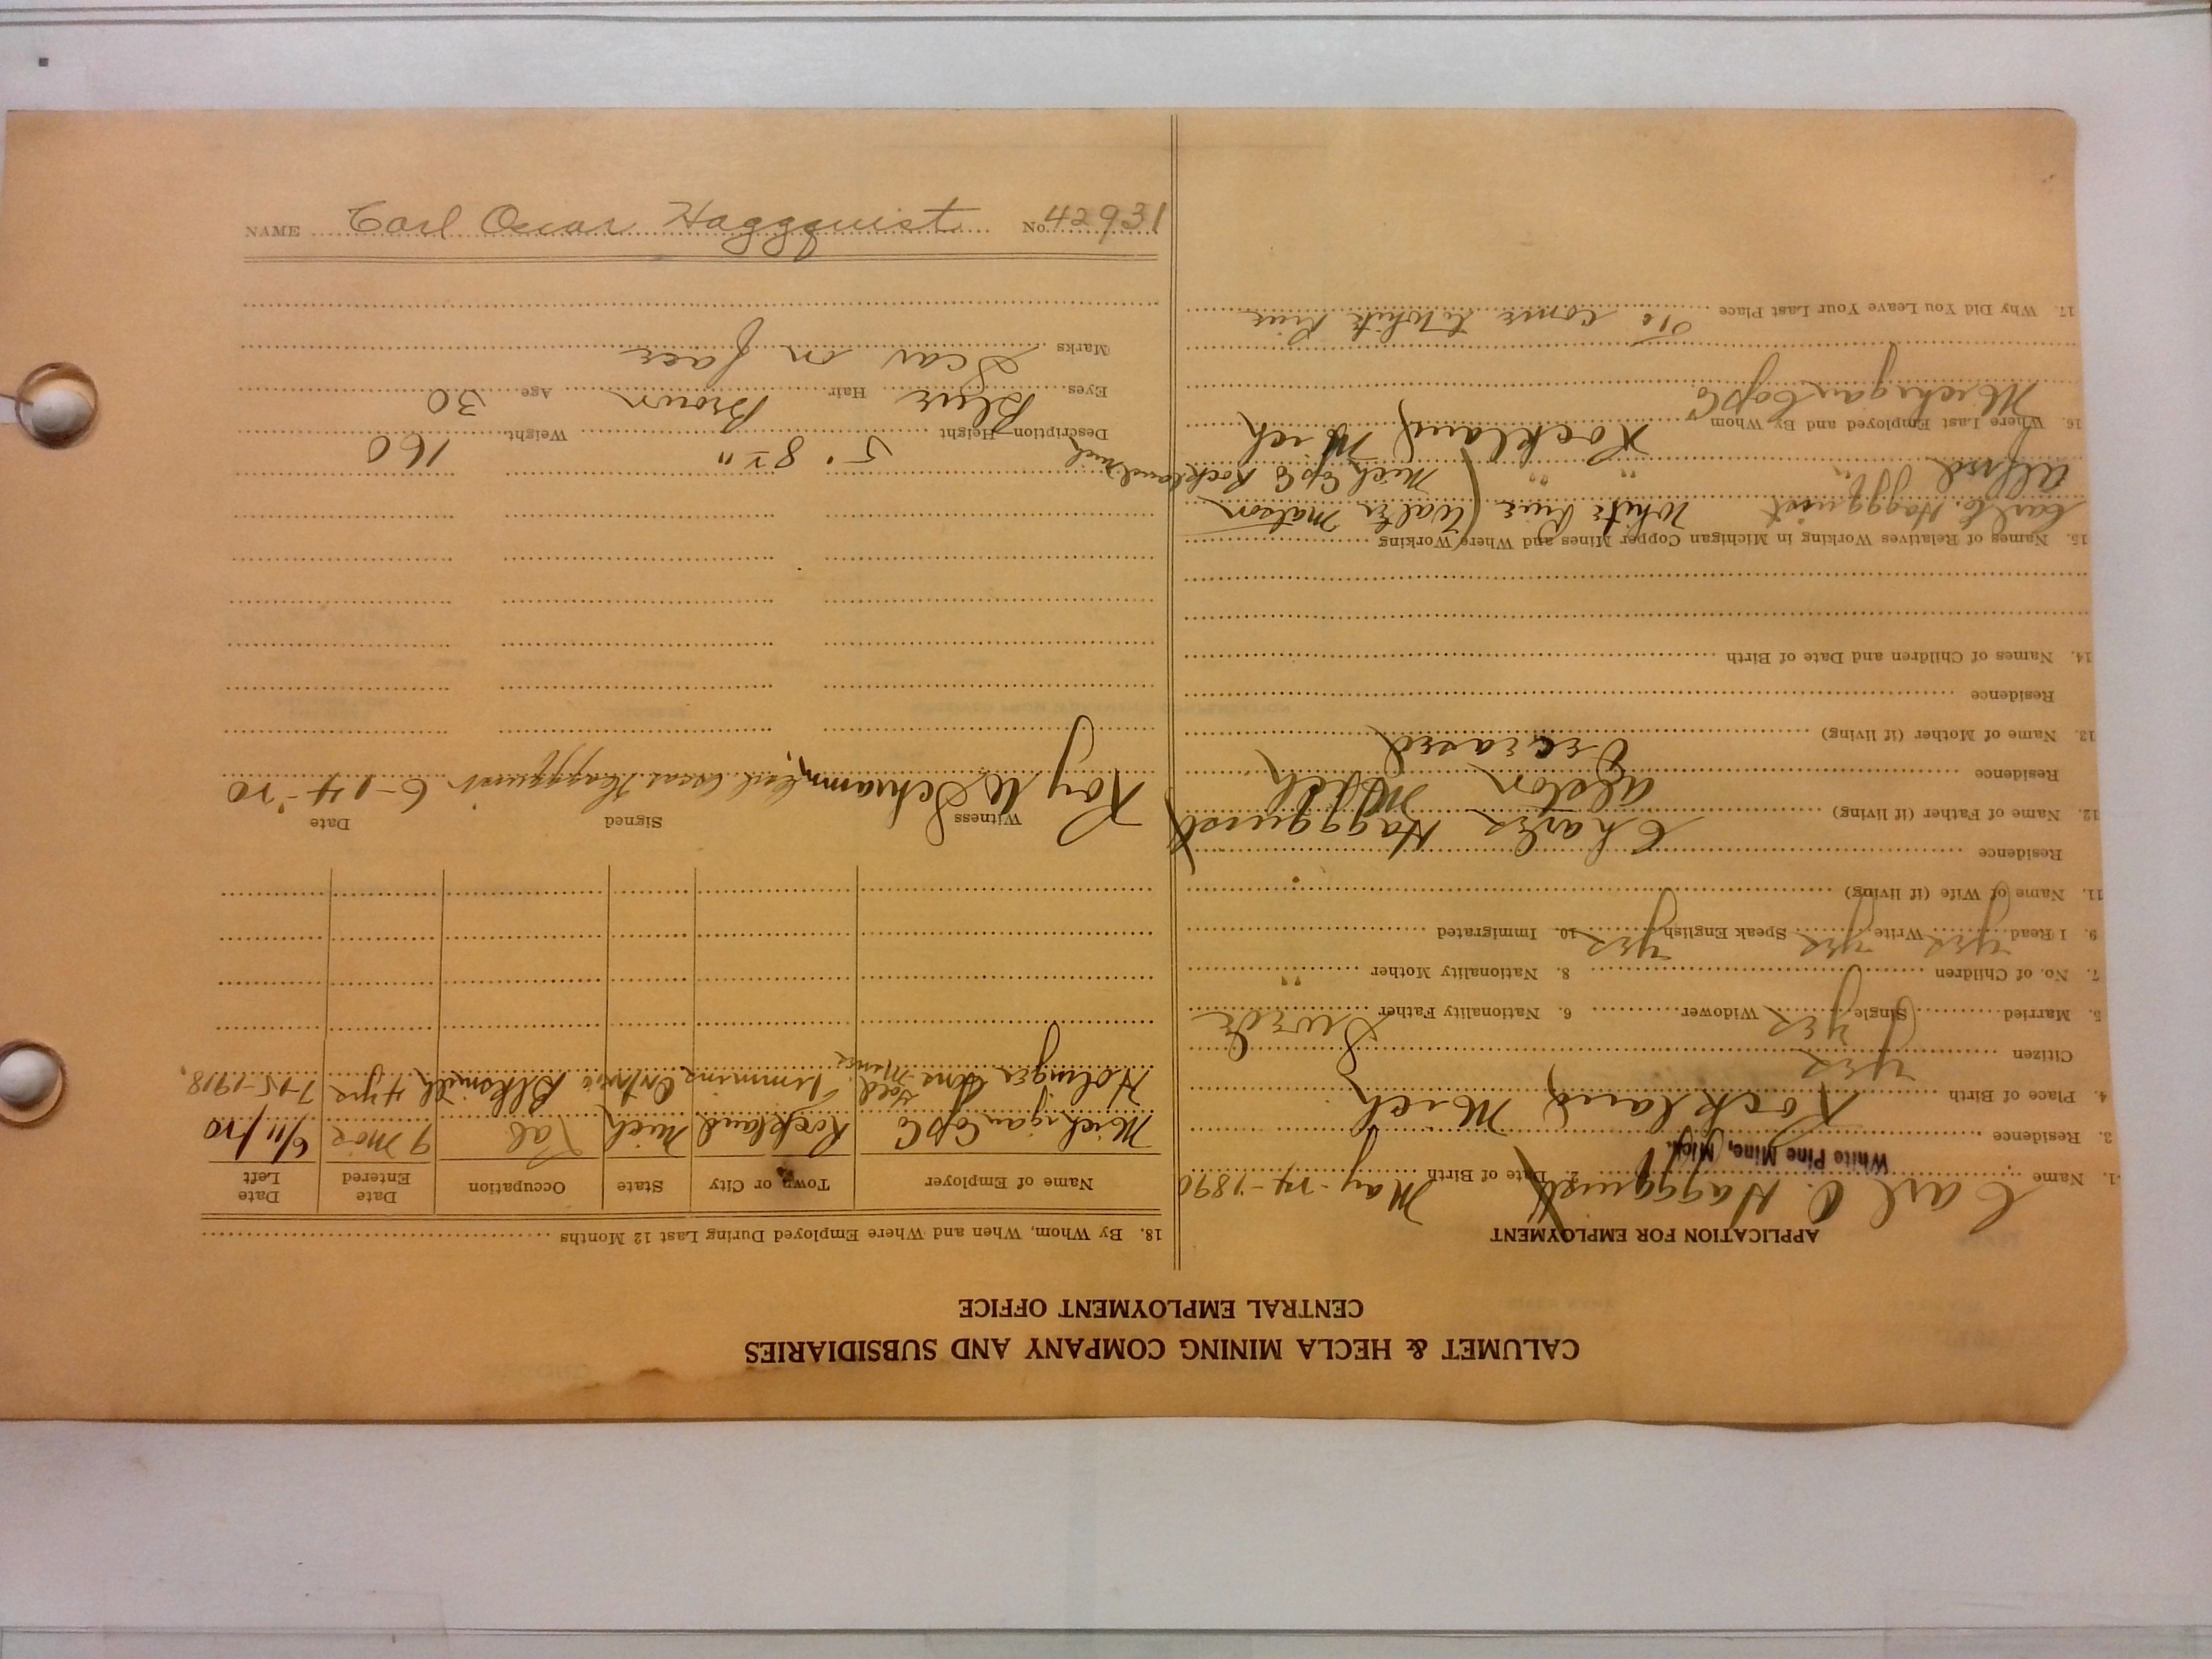 CALUMET & HECLA MINING COMPANY AND SUBSIDIARIES
CENTRAL EMPLOYMENT OFFICE
APPLICATION FOR EMPLOYMENT
1. Name Carl O. Haggquist 2. Date of Birth May-24-1890
White Pine Mine, Mich.
3. Residence
4. Place of Birth Rockland Mich
Citizen yes
5. Married Single yes Widower 6. Nationality Father Swede
7. No. of Children 8. Nationality Mother " "
9. I Read yes Write yes Speak English yes 10. Immigrated
11. Name of Wife (if living)
Residence
12. Name of Father (if living) Charles Haggquist
Residence Alston Mich
13. Name of Mother (if living) Deceased
Residence
14. Names of Children and Date of Birth
15. Names of Relatives Working in Michigan Copper Mines and Where Working
Carl E. Haggquist White Pine (Walter Matson
Alfred " " " Mich Cop Co Rockland Mich
16. Where Last Employed and By Whom Rockland Mich
Michigan Cop Co
17. Why Did You Leave Your Last Place To come to White Pine
18. By Whom, When and Where Employed During Last 12 Months
Name of Employer Town or City State Occupation Date Entered Date Left
Michigan Cop Co Rockland Mich Lab 9 mos 6/11/20
Holinger Gold Mines Timmins Ontario Blksmith 4 yrs 7-15-1918.
Witness Signed Date
Roy W Schramm, Carl Oscar Haggquist 6-14-'20
Description—Height 5' 8½" Weight 160
Eyes Blue Hair Brown Age 30
Marks Scar on face
NAME Carl Oscar Haggquist No. 42931